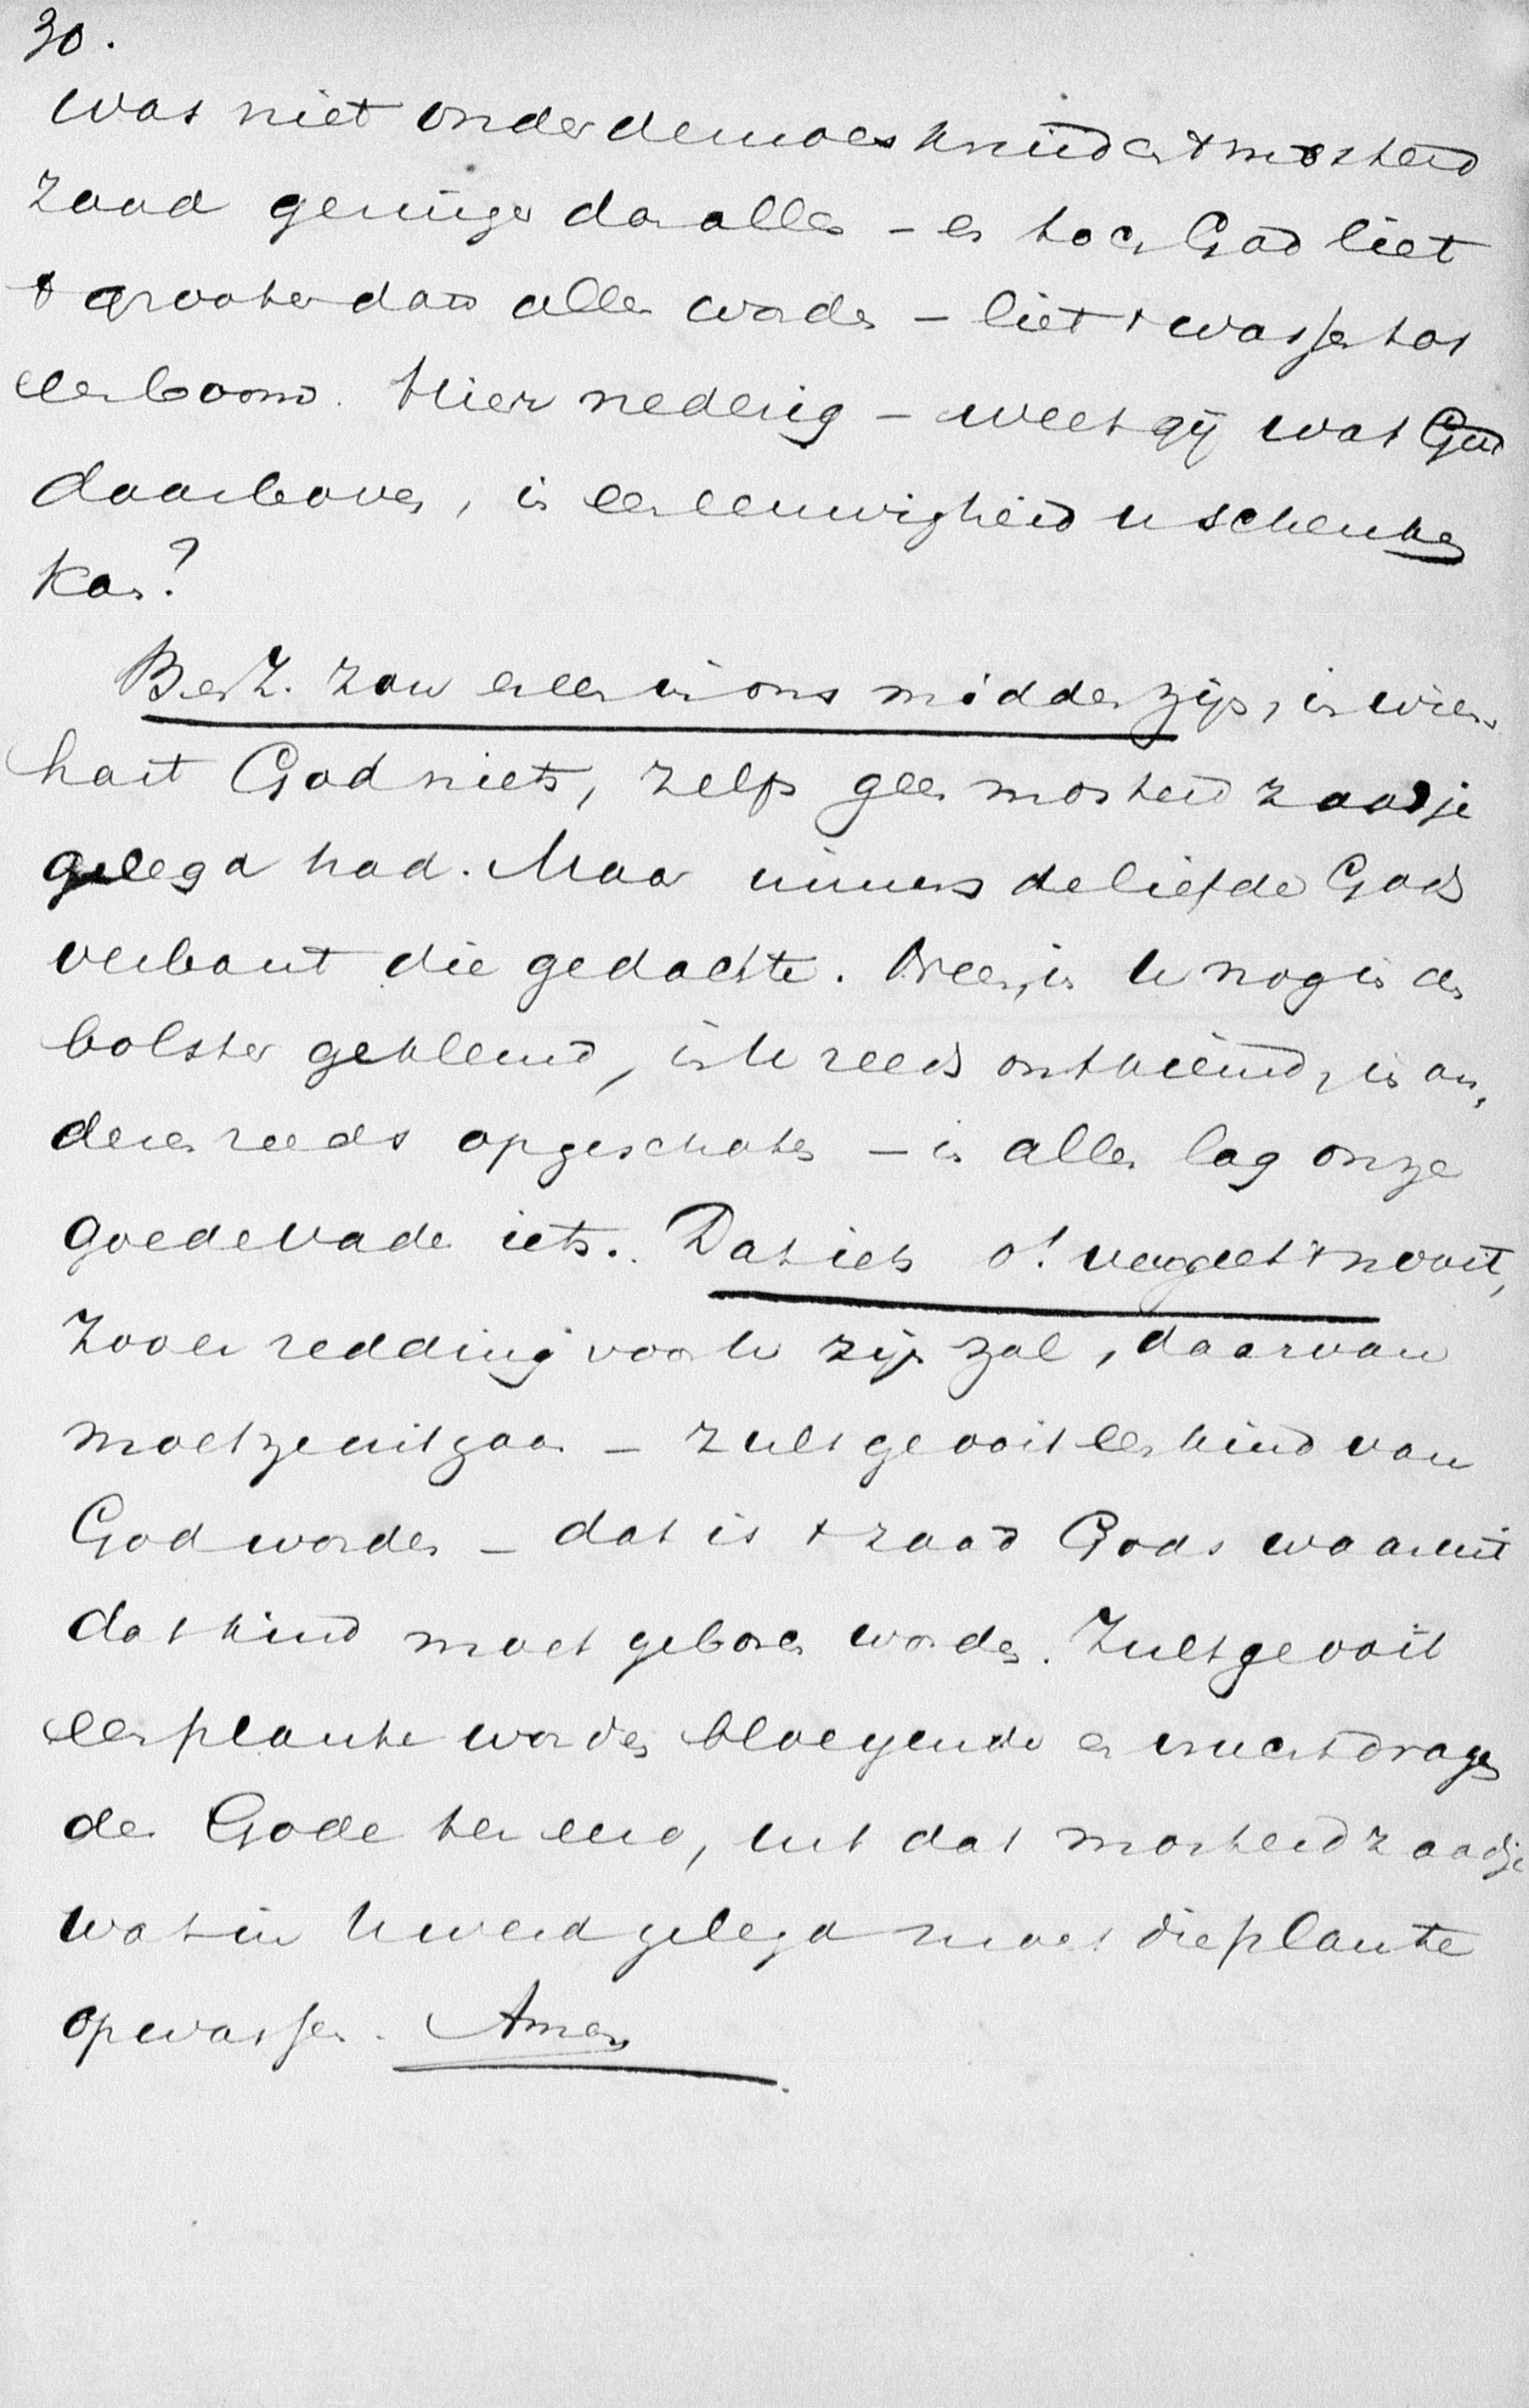 30.
was niet onder de moeskruiden 't mosterd
zaad geringer dan allen – en toch God liet
't grooter dan allen worden – liet 't wassen tot
een boom. Hier nederig – weet gij wat God
daarboven, in een eeuwigheid u schenken
kan?
B. en Z. zou er een in ons midden zijn, in wiens
hart God niets, zelfs geen mosterdzaadje
gelegd had. Maar immers de liefde Gods
verbant die gedachte. Neen, in U nog in den
bolster geklemd, in U reeds ontkiemd, in an„
deren reeds opgeschoten – in allen lag onze
goede Vader iets. Dat iets o! vergeet 't nooit,
zoo er redding voor U zijn zal, daarvan
moet ze uitgaan – zult ge ooit een kind van
God worden – dat is 't zaad Gods waaruit
dat kind moet geboren worden. Zult ge ooit
een plante worden bloeyende en vruchtdragen
de Gode ter eere, uit dat mosterdzaadje
wat in U werd gelegd moet die plante
opwassen. Amen.